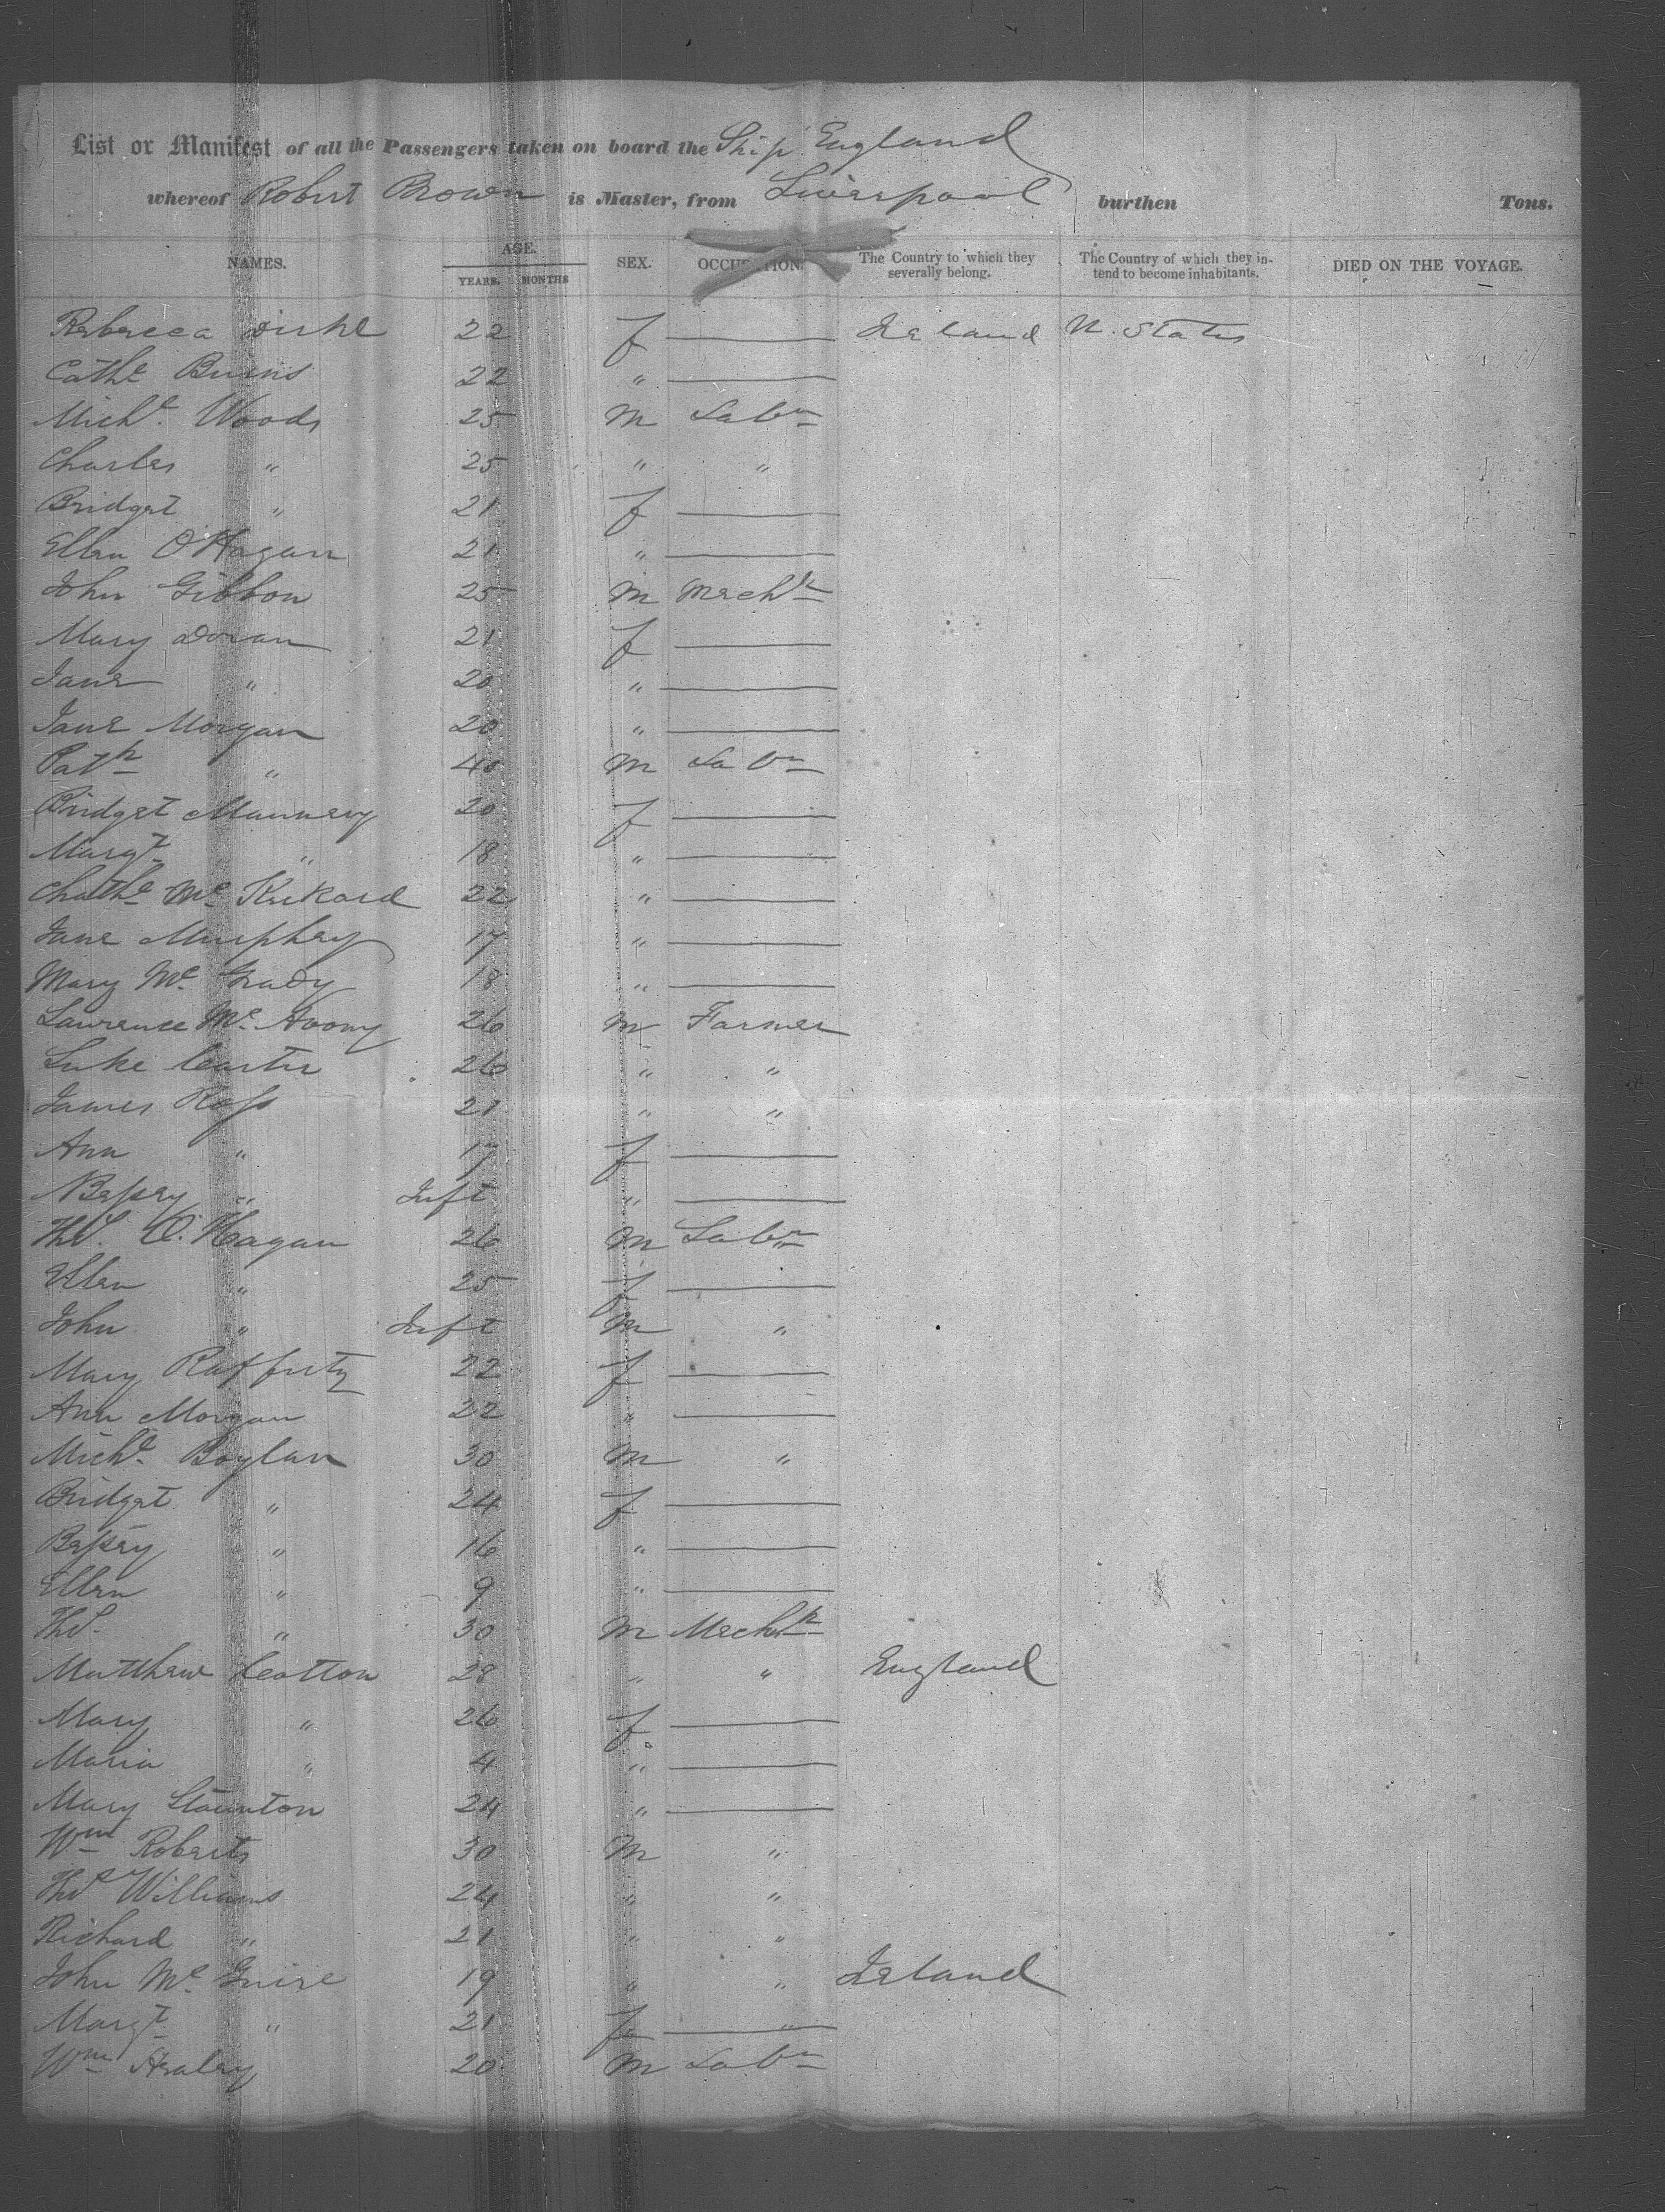 List or Manifest of all the Passengers taken on board the Ship England
whereof Robert Brown is Master, from Liverpool burthen Tons.
NAMES. AGE. YEARS. MONTHS SEX. OCCUPATION. The Country to which they severally belong. The Country of which they intend to become inhabitants. DIED ON THE VOYAGE.
Rebecca 22 f — Ireland U. States
Cathe Burns 22 " —
Michl. Woods 25 M Labr
Charles " 25 " "
Bridget " 21 f —
Ellen O'Hagan 21 " —
John Gibbon 25 M Mechk
Mary Doran 21 f —
Jane " 20 " —
Jane Morgan 20 " —
Patk " 40 M Labr
Bridget 20 f —
Margt " 18 " —
Chathe Mc 22 " —
Jane Murphey 17 " —
Mary Mc Grady 18 " —
Lawrence Mc Avony 26 M Farmer
Luke Carter 26 " "
James Ross 21 " "
Ann " 17 f —
Bessey " Inft " —
Thos. O'Hagan 26 M Labr
Ellen " 25 f —
John " Inft M "
Mary Rafferty 22 f —
Ann Morgan 22 " —
Michl. Boylan 30 M "
Bridget " 24 f —
Bessey " 16 " —
Ellen " 9 " —
Thos. " 30 M Mechk
Matthew Cotton 28 " " England
Mary " 26 f —
Maria " 4 " —
Mary Staunton 24 " —
Wm Roberts 30 M "
Thos Williams 24 " "
Richard " 21 " "
John Mc Guire 19 " " Ireland
Margt " 21 f —
Wm Healey 20 M Labr